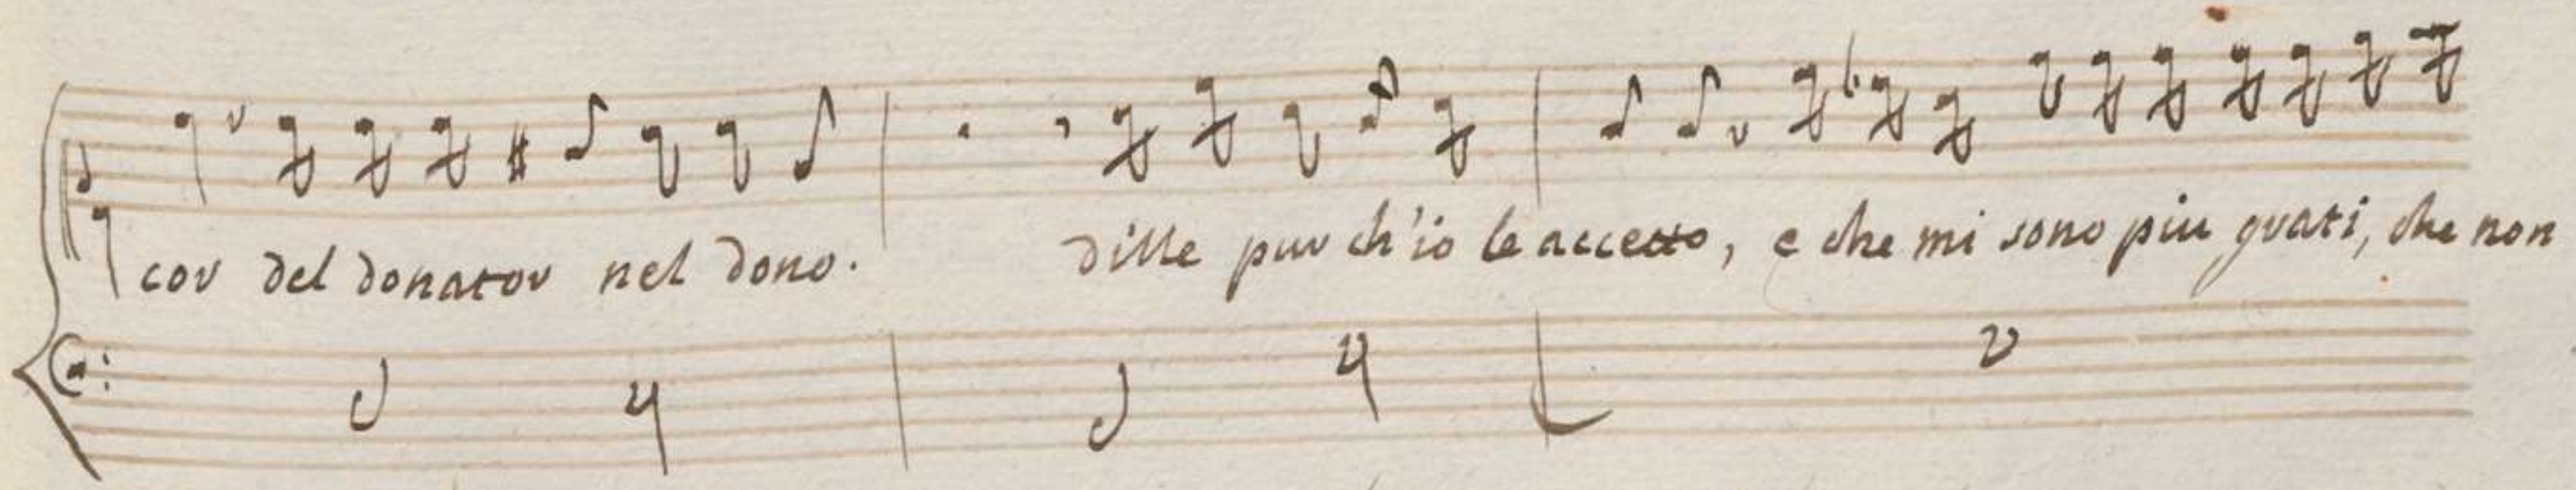 cor del donator nel dono. dille pur ch'io le accetto, e che mi sono piu grati, che non